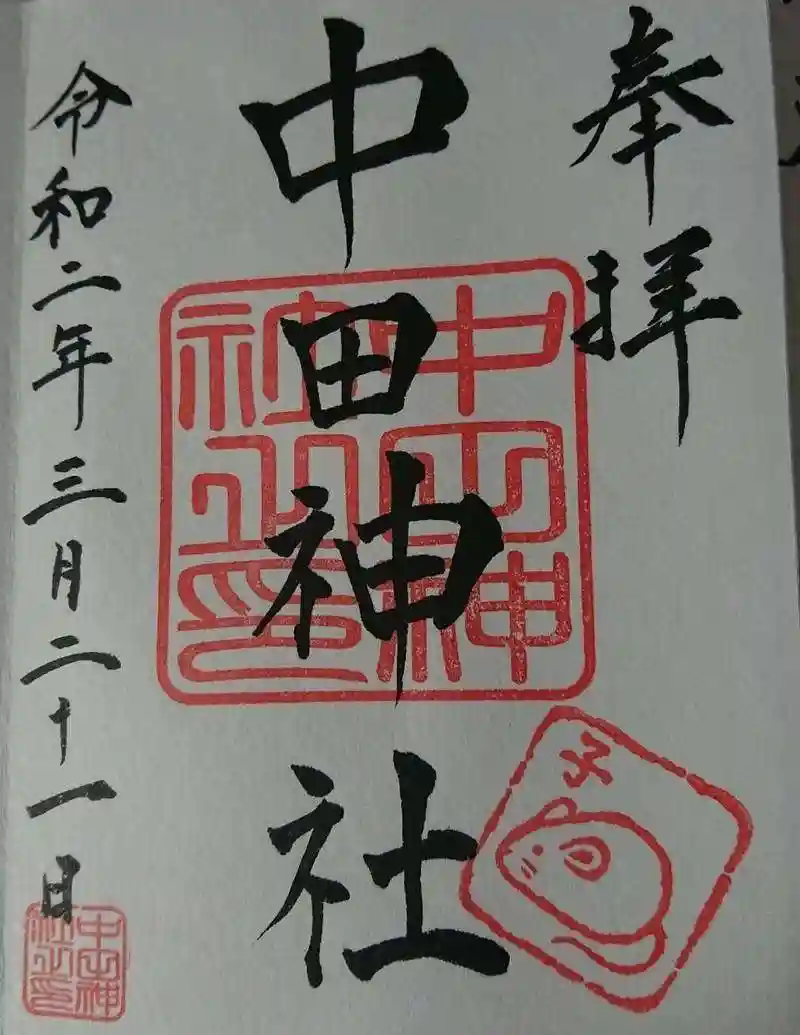 奉拝
中田神社
令和二年三月二十一日
中田神社之印
子
中田神社之印